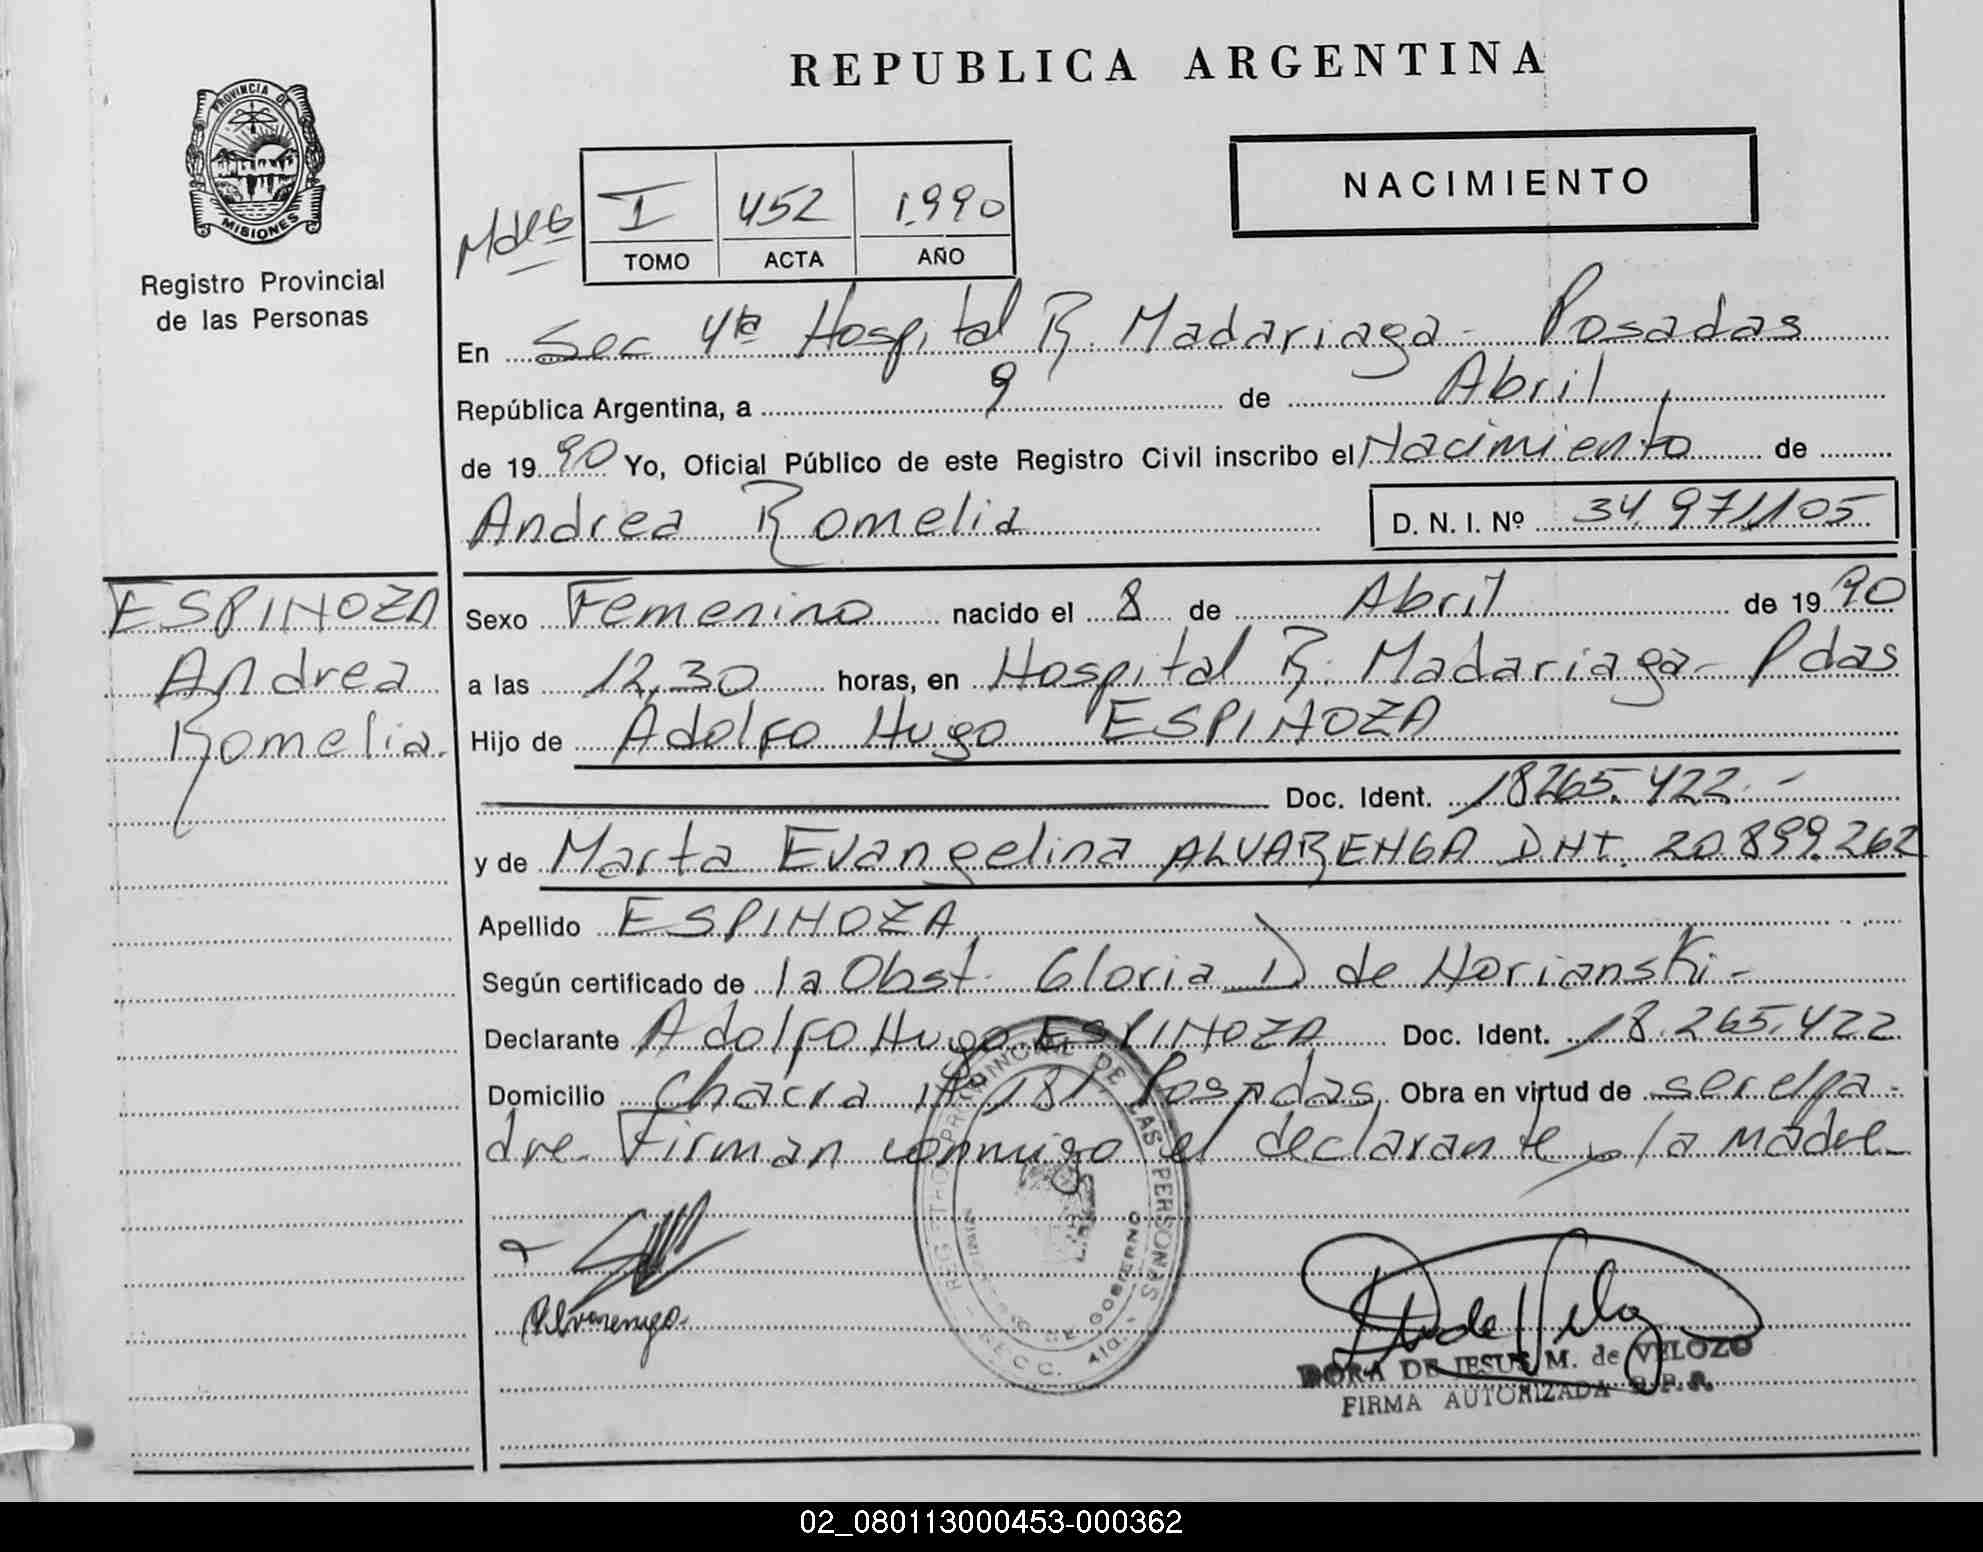 REPUBLICA ARGENTINA
PROVINCIA DE
MISIONES
Registro Provincial
de las Personas
NACIMIENTO
I 452 1990
TOMO ACTA AÑO
En Sec 4ta Hospital R. Madariaga - Posadas
República Argentina, a 9 de Abril
de 1990 Yo, Oficial Público de este Registro Civil inscribo el Nacimiento de
Andrea Romelia D. N. I. Nº 34.971.105
ESPINOZA
Andrea
Romelia.
Sexo Femenino nacido el 8 de Abril de 1990
a las 12,30 horas, en Hospital R. Madariaga - Pdas
Hijo de Adolfo Hugo ESPINOZA
Doc. Ident. 18265.422.-
y de Marta Evangelina ALVARENGA DNI. 20.899.262
Apellido ESPINOZA
Según certificado de la Obst. Gloria D de Norianski-
Declarante Adolfo Hugo ESPINOZA Doc. Ident. 18.265.422
Domicilio Chacra Nº 181 Posadas. Obra en virtud de ser el pa-
dre. Firman conmigo el declarante y la madre-
PROVINCIAL DE LAS PERSONAS
DE GOBIERNO
SECC. 4ta.
Alvarenga.
DORA DE JESUS M. de VELOZO
FIRMA AUTORIZADA R.P.P.
02_080113000453-000362